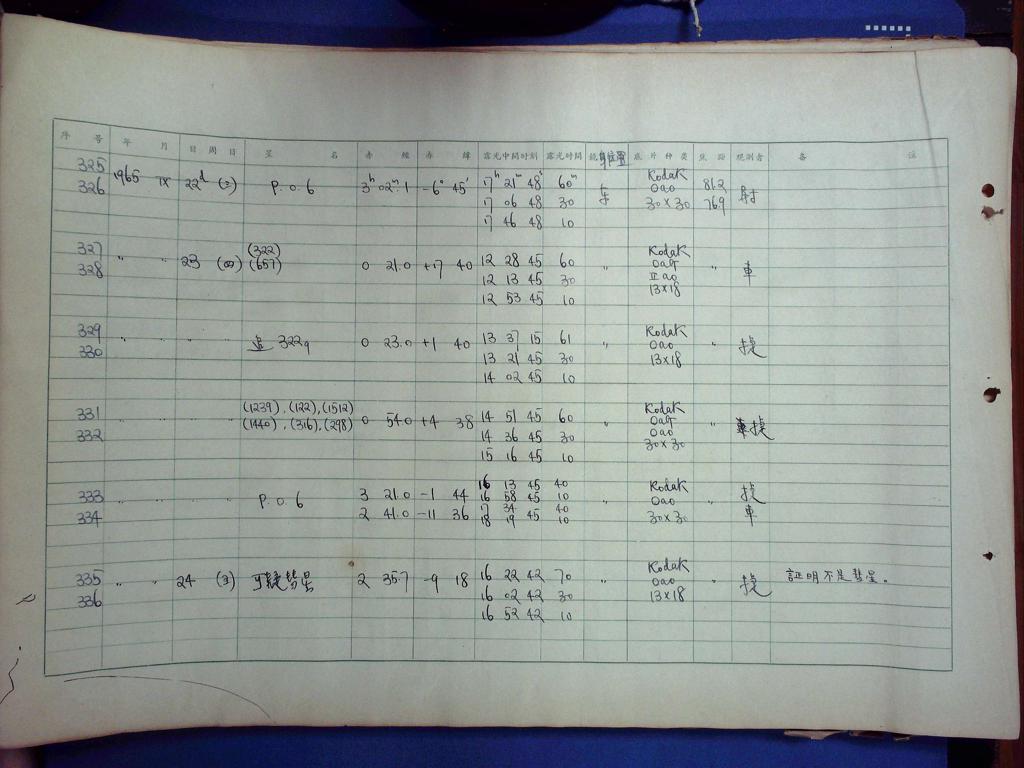 序 号 年 月 日 周日 星 名 赤 經 赤 緯 露光中間时刻 露光时間 鏡身位置 底片种类 焦距 观測者 备 註
325 1965 IX 22d (三) P.O.6 3h 02m.1 -6° 45' 17h 21m 48s 60m 东 Kodak 81.2 射
326 17 06 48 30 Oao 76.9
17 46 48 10 30×30
327 " " 23 (四) (322) 0 21.0 +17 40 12 28 45 60 " Kodak " 車
328 (657) 12 13 45 30 IIao
12 53 45 10 13×18
329 " " " " 322 0 23.0 +1 40 13 37 15 61 " Kodak "
330 13 21 45 30 Oao
14 02 45 10 13×18
331 " " " " (1239), (122), (1512) 0 54.0 +4 38 14 51 45 60 " Kodak "
332 (1440), (316), (298) 14 36 45 30 Oao
15 16 45 10 30×30
333 " " " " P.O.6 3 21.0 -1 44 16 13 45 40 " Kodak "
16 58 45 10 Oao
334 2 41.0 -11 36 17 34 40 30×30 車
18 19 45 10
335 " " 24 可疑彗星 2 35.7 -9 18 16 22 42 70 " Kodak " 証明不是彗星。
336 16 02 42 30 Oao
16 52 42 10 13×18